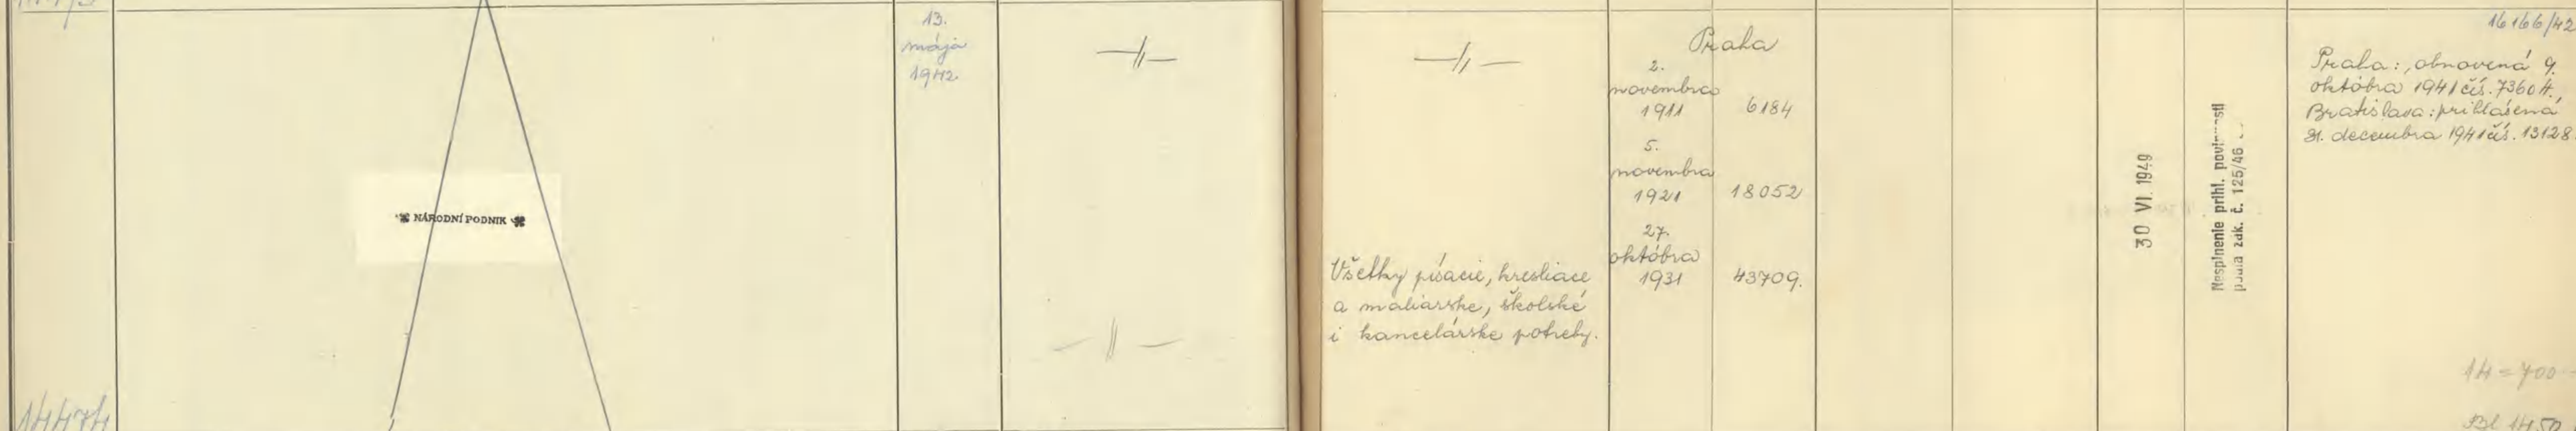 13.
mája
1942
—//—
❦ NÁRODNÍ PODNIK ❦
— // —
14474
—//—
Všetky písacie, kresliace
a maliarske, školské
i kancelárske potreby.
Praha
2.
novembra
1911 6184
5.
novembra
1921 18052
27.
októbra
1931 43709.
30 VI. 1949
Nesplnenie prihl.
zák. č. 125/46
16166/42
Praha: obnovená 9.
októbra 1941 čís. 73604.,
Bratislava: prihlásená
31. decembra 1941 čís. 13128.
14 = 700